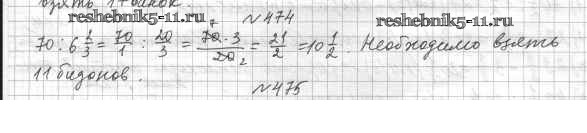 взять 1+банок.
reshebnik5-11.ru №474 reshebnik5-11.ru
70 : 6 2/3 = 70/1 : 20/3 = 70 · 3 / 20 = 21/2 = 10 1/2. Необходимо взять
11 бидонов.
№475